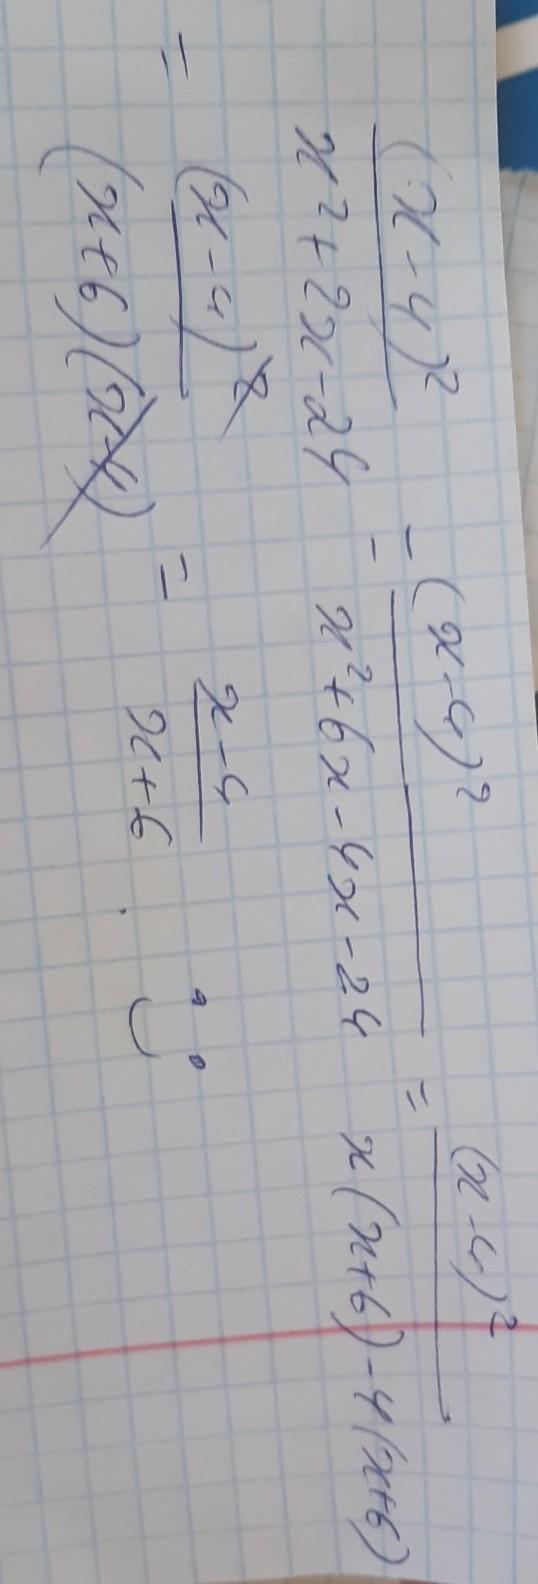 (x-4)²/(x²+2x-24) = (x-4)²/(x²+6x-4x-24) = (x-4)²/(x(x+6)-4(x+6))
= (x-4)²/((x+6)(x-4)) = (x-4)/(x+6) .